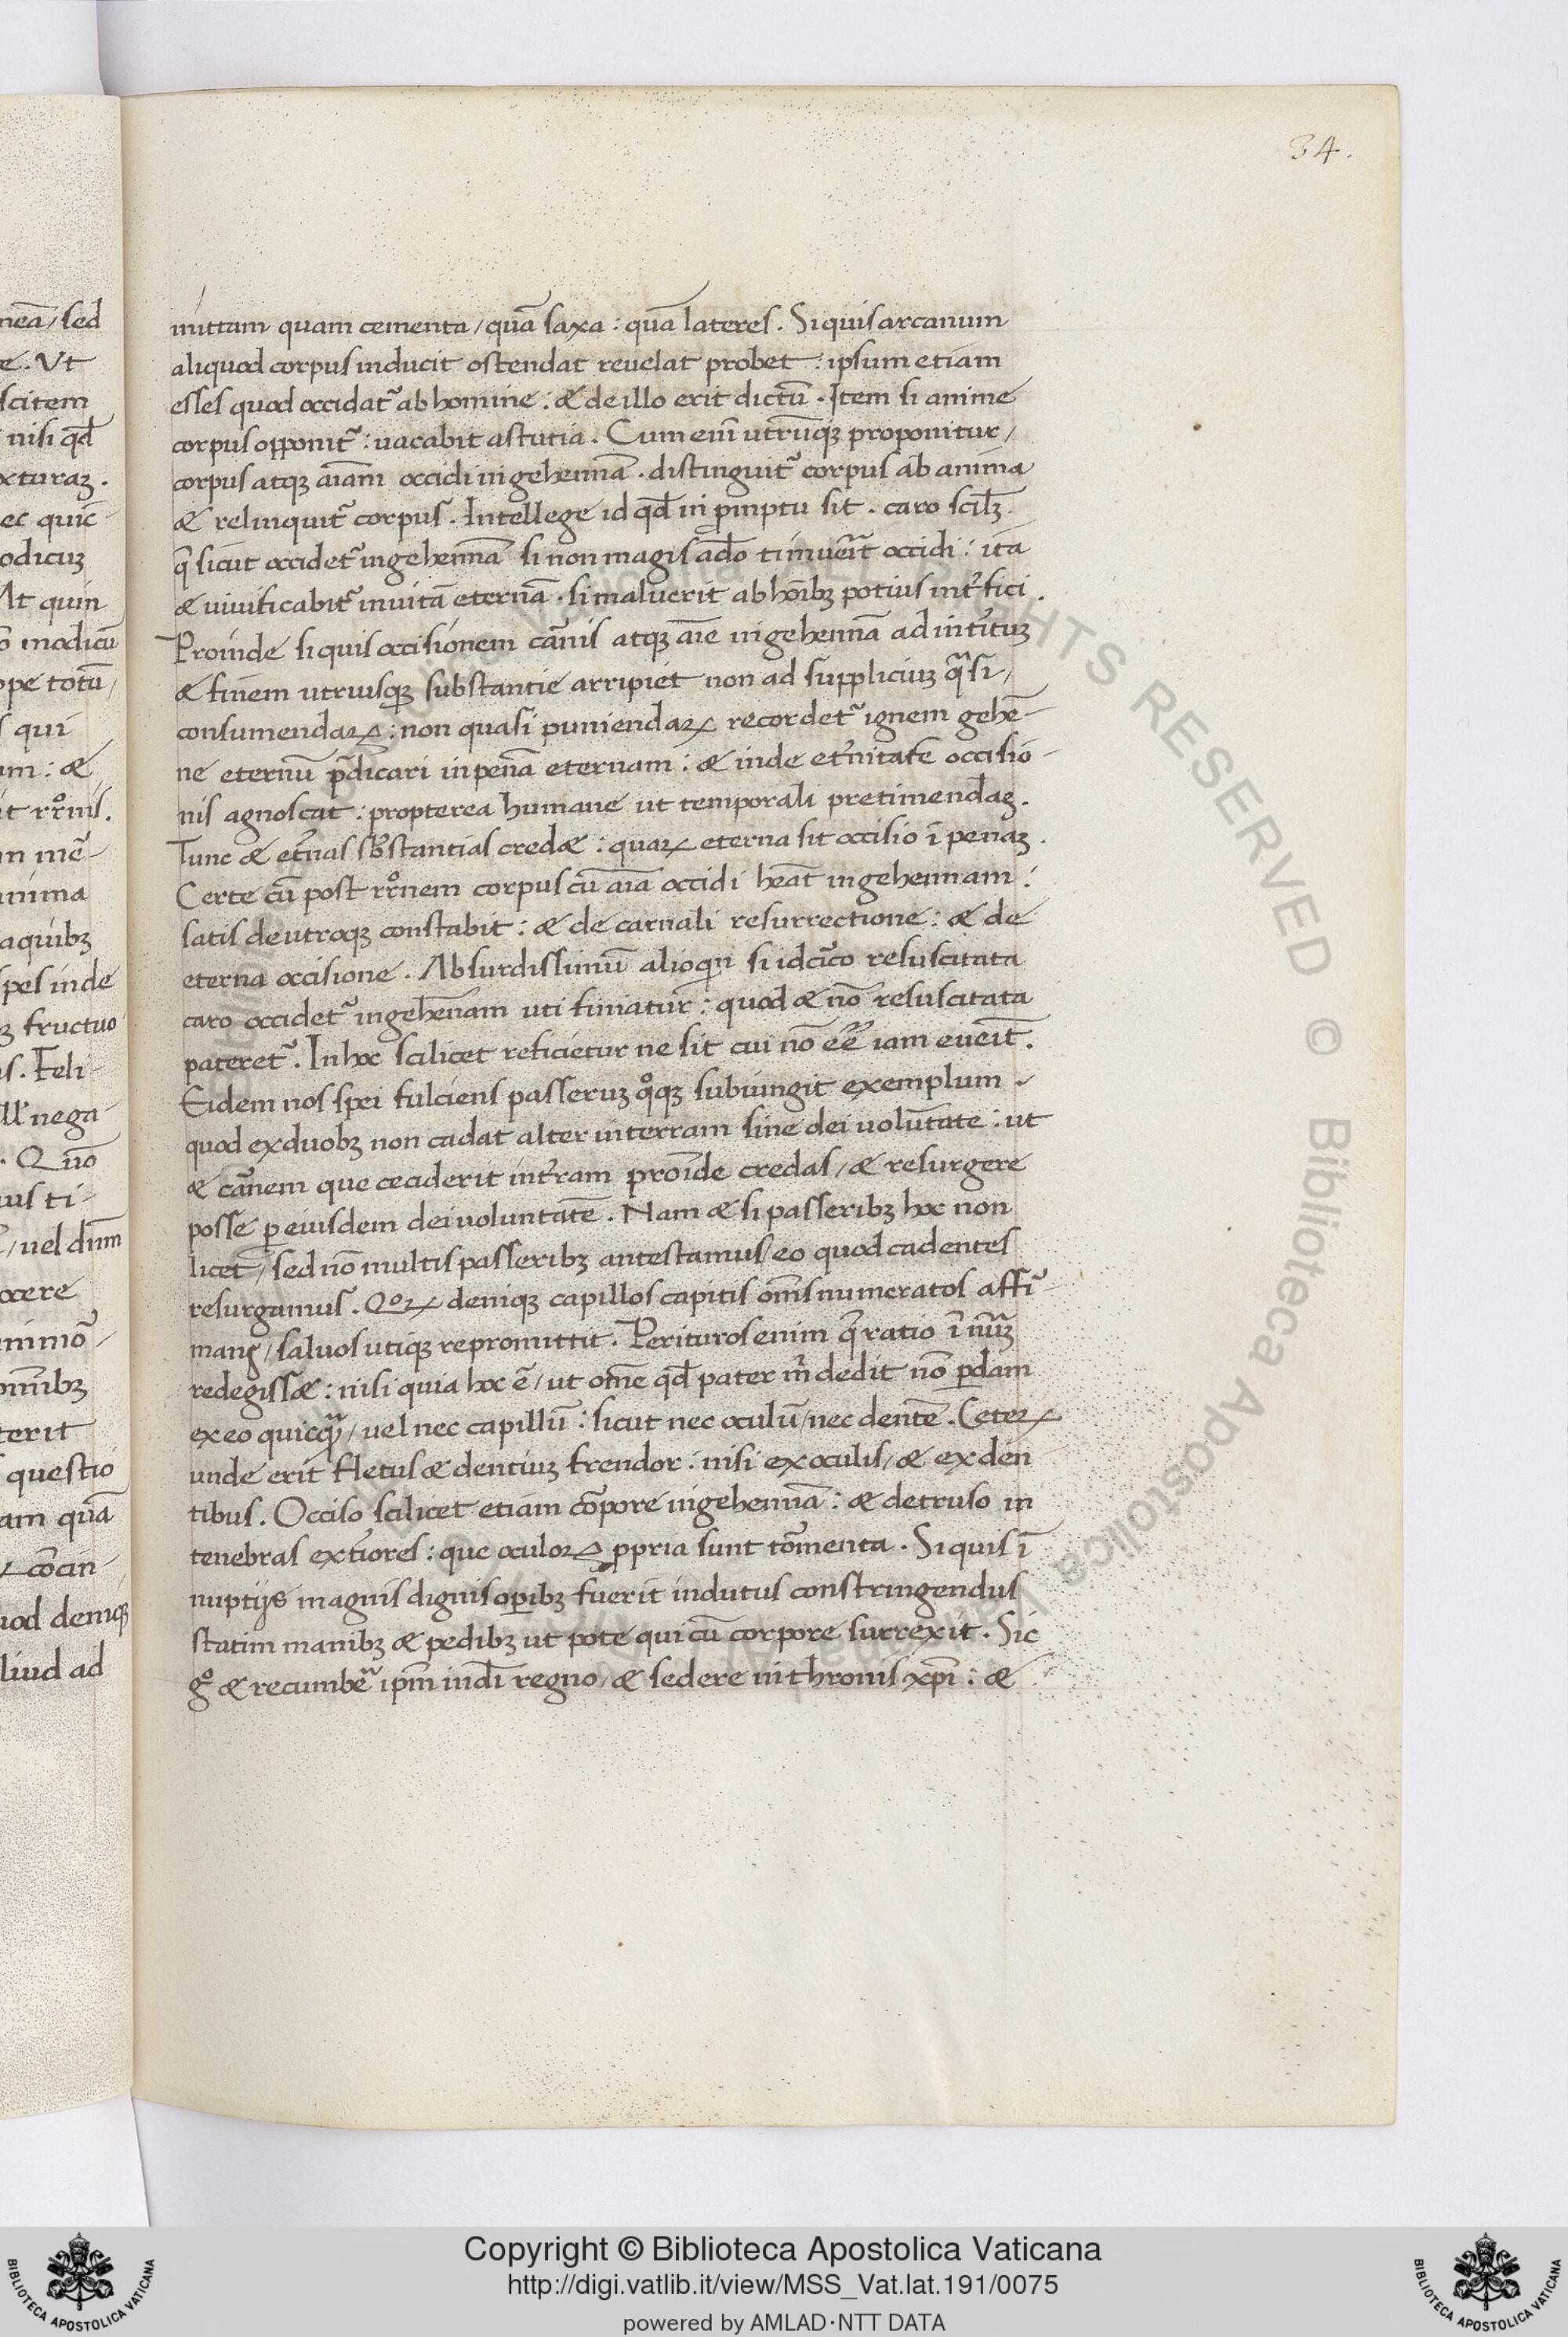 34.
nea᷈/ sed
e. Vt
scitem
nisi qđ
xturaꝫ.
ec quic-
odicuꝫ
At quin
modicū
pe totū/
qui
um: &
it rr̊nis.
in mē-
nima
aquibꝫ
spes inde
fructuo
s. Feli-
ll' nega-
. Quō
us ti-
/ uel dnm̄
ocere
nimō-
omībꝫ
terit
questio
am quā
cōcin-
uod deniqꝫ
liud ad
mittam quam cementa/ quā saxa: quā lateres. Siquis arcanum
aliquod corpus inducit ostendat reuelat probet: ipsum etiam
esses quod occidat᷑ ab homine: & de illo erit dictū. Item si anime
corpus opponit᷑: uacabit astutia. Cum enī utrūqꝫ proponitur/
corpus atqꝫ aīam occidi in gehennā. distinguit᷑ corpus ab anima
& relinquit᷑ corpus. Intellege id qđ in ꝓmptu sit. caro scilꝫ.
q̄ sicut occidet᷑ ingehennā si non magis a deo timuerit occidi: ita
& uiuificabit᷑ inuitā eternā. si maluerit ab hoībꝫ potius int᷑fici.
Proinde siquis occisionem carnis atqꝫ aīe in gehennā ad int᷑ituꝫ
& finem utriusqꝫ substantie arripiet non ad suppliciuꝫ qᷓsi/
consumendaꝝ: non quasi puniendaꝝ recordet᷑ ignem gehē-
ne eternū p̄dicari inpenā eternam: & inde et᷑nitate occisio-
nis agnoscat: propterea humane ut temporali pretimendaꝫ.
Tunc & et᷑nas sb̄stantias cred&: quaꝝ eterna sit occisio ī penaꝫ.
Certe cū post rr̊nem corpus cū aīa occidi heāt ingehennam:
satis deutroqꝫ constabit: & de carnali resurrectione: & de
eterna occisione. Absurdissimū alioqin si idcirco resuscitata
caro occidet᷑ ingehēnam uti finiatur: quod & nō resuscitata
pateret᷑. In hoc scilicet reficietur ne sit cui nō eē iam eueīt.
Eidem nos spei fulciens passeruꝫ qͦqꝫ subiungit exemplum
quod exduobꝫ non cadat alter in terram sine dei volūtate: ut
& carnem que ceciderit int᷑ram proīde credas/ & resurgere
posse ꝑ eiusdem dei voluntatē. Nam & si passeribꝫ hoc non
licet/ sed nō multis passeribꝫ antestamus/ eo quod cadentes
resurgamus. Qoꝝ deniqꝫ capillos capitis om̄s numeratos affi᷑-
mans/ saluos utiqꝫ repromittit. Perituros enim q̄ ratio ī nūꝫ
redegiss&: nisi quia hoc ē/ ut omē qđ pater m̄ dedit nō ꝑdam
ex eo quicqᷓ/ uel nec capillū: sicut nec oculū/ nec dentē. Ceteꝝ
unde erit fletus & dentiuꝫ frendor: nisi ex oculis/ & ex den
tibus. Occiso scilicet etiam corpore in gehennā: & detruso in
tenebras ext᷑iores: que oculoꝝ ꝓpria sunt tormenta. Siquis ī
nuptijs magnis dignis oꝑibꝫ fuerit indutus constringendus
statim manibꝫ & pedibꝫ ut pote qui cū corpore surrexit. Sic
gͦ & recumbe᷑ ipm̄ indī regno/ & sedere inthronis xp̄i: &
Copyright © Biblioteca Apostolica Vaticana
http://digi.vatlib.it/view/MSS_Vat.lat.191/0075
powered by AMLAD·NTT DATA